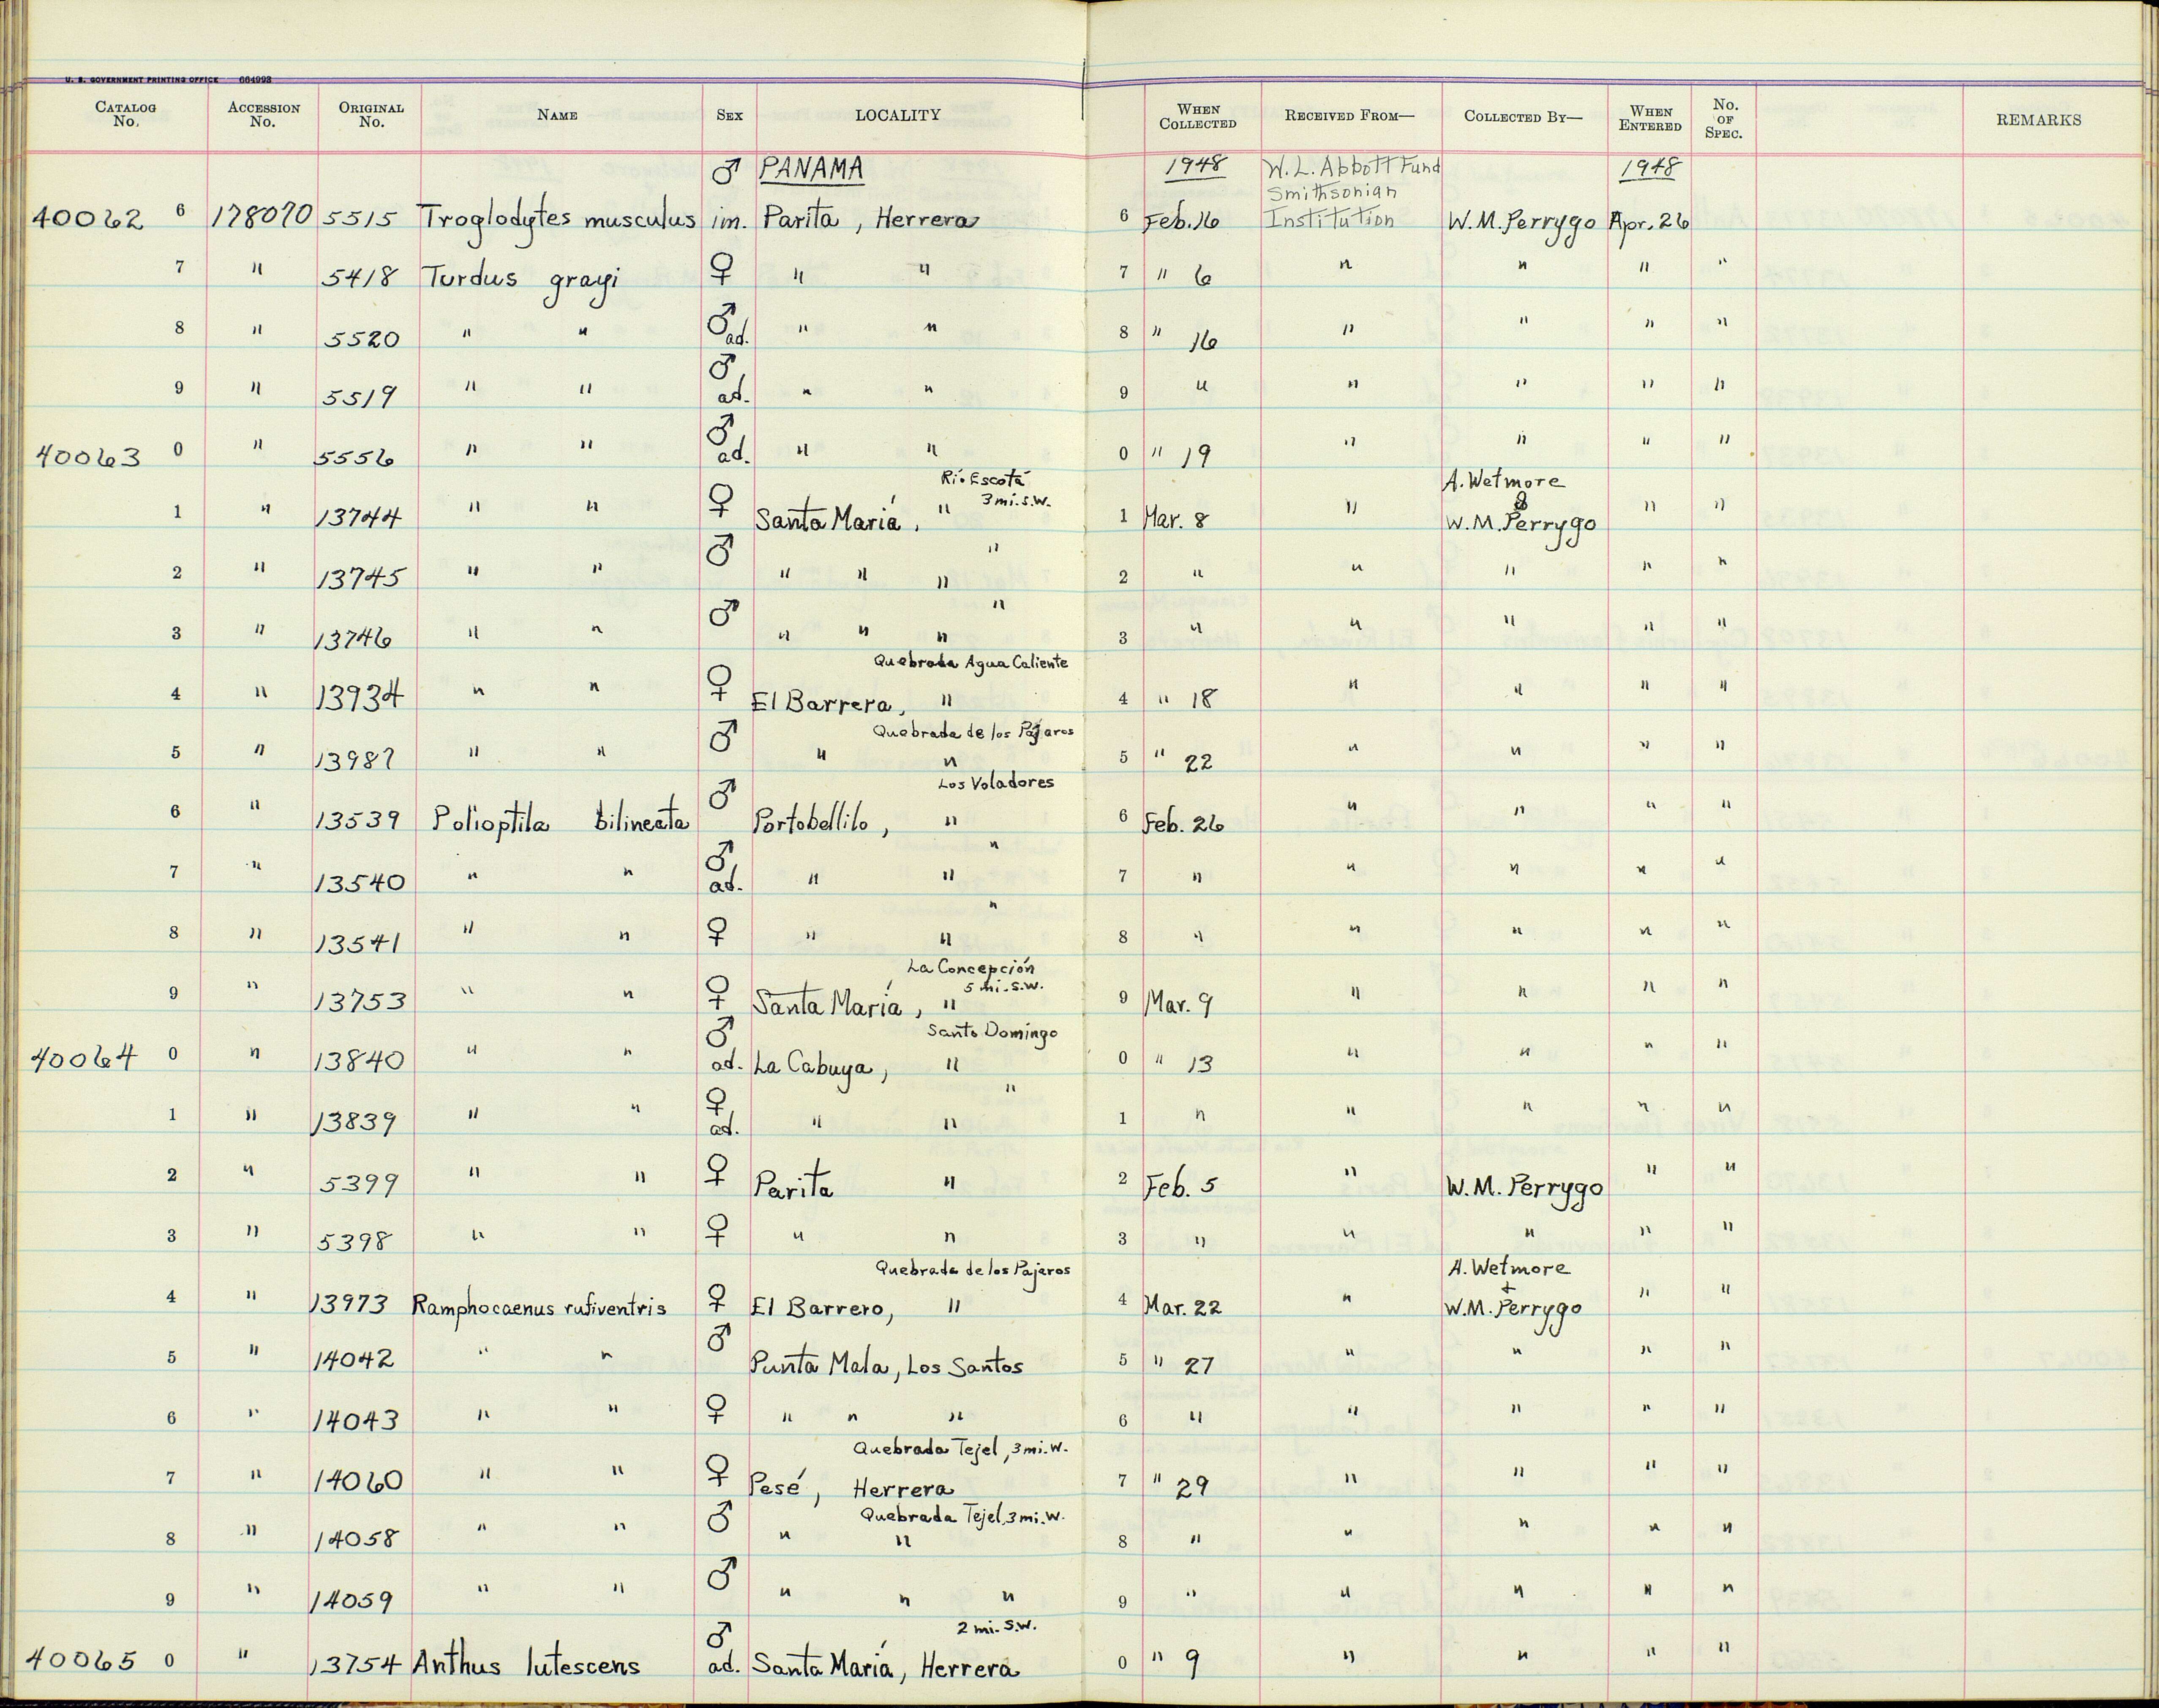 U. S. GOVERNMENT PRINTING OFFICE 664993
CATALOG No. ACCESSION No. ORIGINAL No. NAME SEX LOCALITY WHEN COLLECTED RECEIVED FROM— COLLECTED BY— WHEN ENTERED No. OF SPEC. REMARKS
♂ PANAMA 1948 W. L. Abbott Fund 1948
Smithsonian
40062 6 178070 5515 Troglodytes musculus im. Parita, Herrera 6 Feb. 16 Institution W. M. Perrygo Apr. 26
7 " 5418 Turdus grayi ♀ " " 7 " 6 " " " "
8 " 5520 " " ♂ ad. " " 8 " 16 " " " "
9 " 5519 " " ♂ ad. " " 9 " " " " "
40063 0 " 5556 " " ♂ ad. " " 0 " 19 " " " "
Río Escotá A. Wetmore
3 mi. S.W. &
1 " 13744 " " ♀ Santa María, " 1 Mar. 8 " W. M. Perrygo " "
"
2 " 13745 " " ♂ " " " 2 " " " " "
"
3 " 13746 " " ♂ " " " 3 " " " " "
Quebrada Agua Caliente
4 " 13934 " " ♀ El Barrera, " 4 " 18 " " " "
Quebrada de los Pájaros
5 " 13987 " " ♂ " " 5 " 22 " " " "
Los Voladores
6 " 13539 Polioptila bilineata ♂ Portobellilo, " 6 Feb. 26 " " " "
"
7 " 13540 " " ♂ ad. " " 7 " " " " "
"
8 " 13541 " " ♀ " " 8 " " " " "
La Concepción
5 mi. S.W.
9 " 13753 " " ♀ Santa María, " 9 Mar. 9 " " " "
Santo Domingo
40064 0 " 13840 " " ♂ ad. La Cabuya, " 0 " 13 " " " "
"
1 " 13839 " " ♀ ad. " " 1 " " " " "
2 " 5399 " " ♀ Parita " 2 Feb. 5 " W. M. Perrygo " "
3 " 5398 " " ♀ " " 3 " " " " "
Quebrada de los Pajaros A. Wetmore
+
4 " 13973 Ramphocaenus rufiventris ♀ El Barrero, " 4 Mar. 22 " W. M. Perrygo " "
5 " 14042 " " ♂ Punta Mala, Los Santos 5 " 27 " " " "
6 " 14043 " " ♀ " " " 6 " " " " "
Quebrada Tejel, 3 mi. W.
7 " 14060 " " ♀ Pesé, Herrera 7 " 29 " " " "
Quebrada Tejel, 3 mi. W.
8 " 14058 " " ♂ " " 8 " " " " "
9 " 14059 " " ♂ " " " 9 " " " " "
2 mi. S.W.
40065 0 " 13754 Anthus lutescens ♂ ad. Santa María, Herrera 0 " 9 " " " "